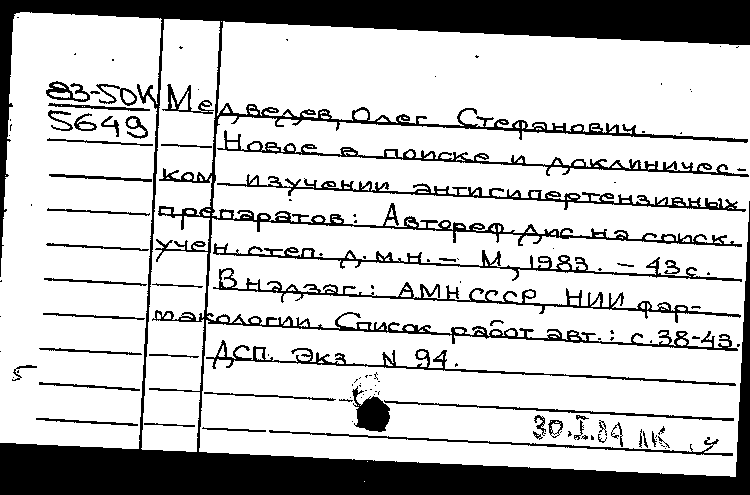 83-50К Медведев, Олег Стефанович.
5649 Новое в поиске и доклиничес-
ком изучении антисипертензивных
препаратов: Автореф. дис. на соиск.
учен. степ. д.м.н. - М., 1983. - 43с.
В надзаг.: АМН СССР, НИИ фар-
макологии. Список работ авт.: с.38-43.
ДСП. Экз N 94.
5
30.I.84 ЛК